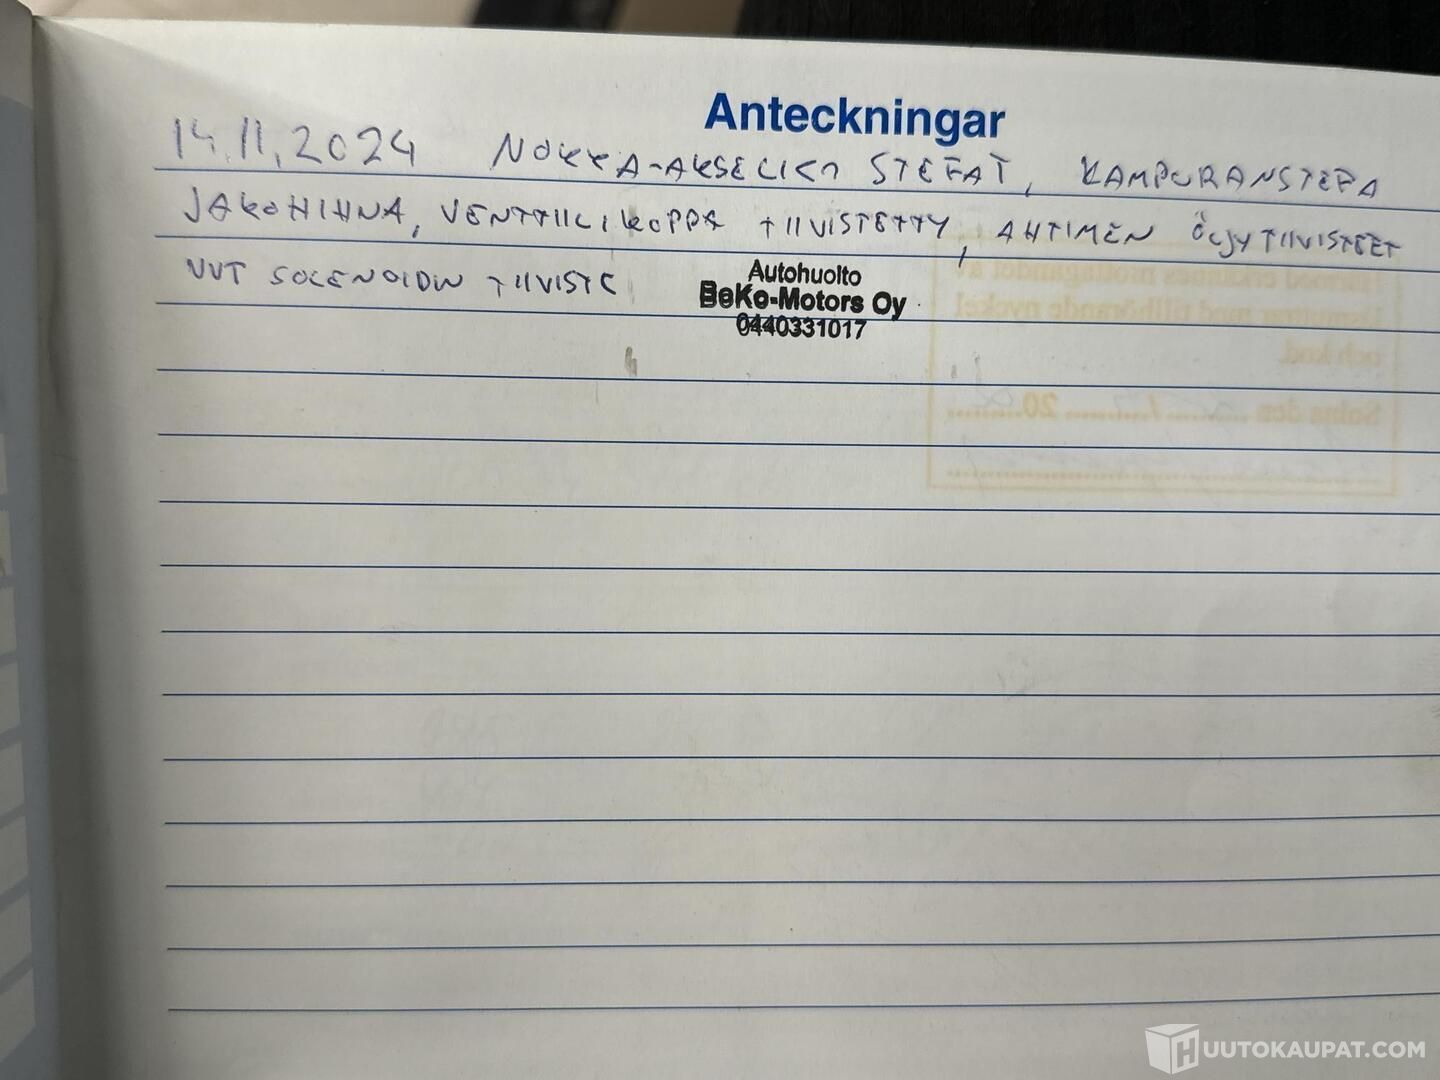 Anteckningar
14.11.2024 NOKKA-AKSELIEN STEFAT, KAMPURANSTEFA
JAKOHIHNA, VENTTIILIKOPPA TIIVISTETTY, AHTIMEN ÖLJYTIIVISTEET
VVT SOLENOIDIN TIIVISTE
Autohuolto
BeKe-Motors Oy
0440331017
och kod.
Solna den ......... /......... 20.........
HUUTOKAUPAT.COM